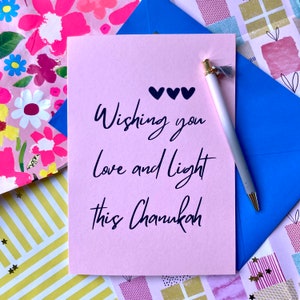 Wishing you
Love and Light
this Chanukah